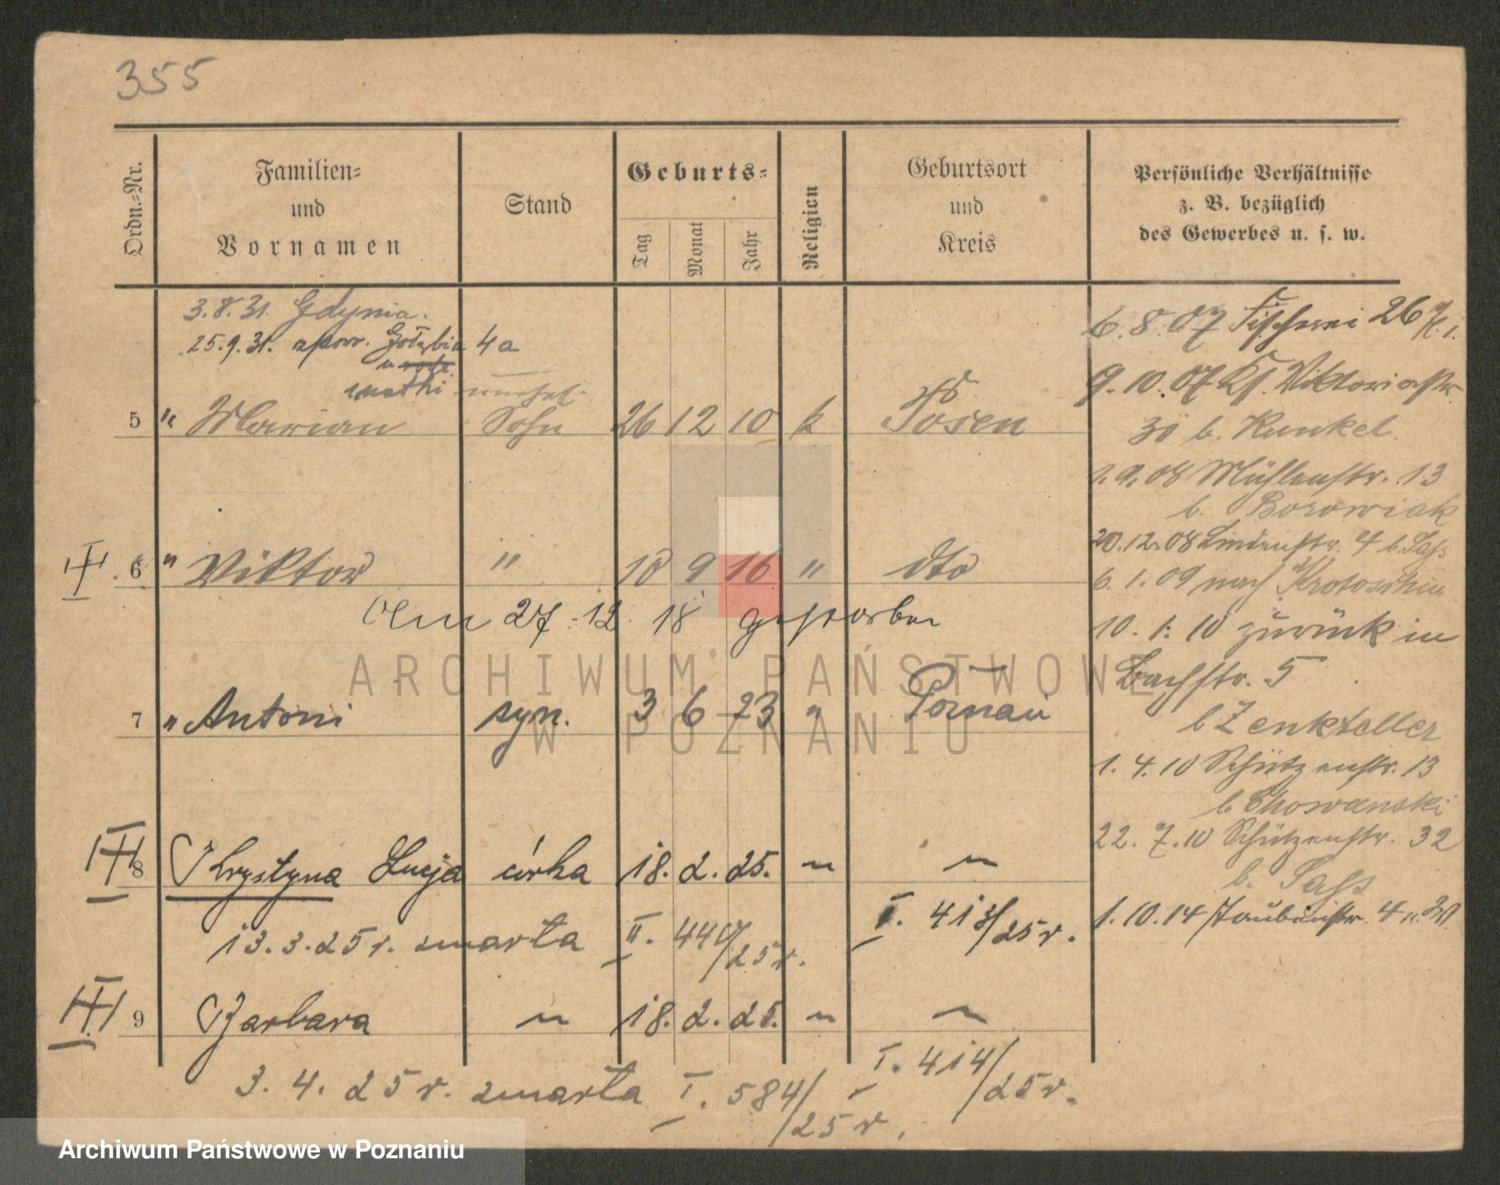 355
Ordn.-Nr.
Familien-
und
Vornamen
Stand
Geburts-
Tag
Monat
Jahr
Religion
Geburtsort
und
Kreis
Persönliche Verhältnisse
z. B. bezüglich
des Gewerbes u. s. w.
3.8.31. Gdynia.
25.9.31. Gołębia 4a
matki
5 " Marian Sohn 26 12 10 k Posen
6 " Viktor " 18 9 16 " dto
Am 27.12.18 gestorben
7 " Antoni syn. 3 6 23 "
8 Krystyna Lucja córka 18. 2. 25. " "
13.3.25 r. zmarła II. /25 r. I. 413/25 r.
9 Barbara " 18. 2. 25. " "
3. 4. 25 r. zmarła I. 584/25 r. I. 414/25 r.
6.8.07 Fischerei 26
9.10.07 Viktoriastr.
30 b. Kunkel
1.9.08 Mühlenstr. 13
b. Borowiak
20.12.08 Lindenstr. 4 b. Sass
6.1.09 nach Krotoschin
10.1.10 zurück in
Bachstr. 5
b Zenkteller
1.4.10 Schützenstr. 13
b. Chowanski
22.7.10 Schützenstr. 32
b. Sass
1.10.14 Taubenstr. 4
ARCHIWUM PAŃSTWOWE
W POZNANIU
Archiwum Państwowe w Poznaniu